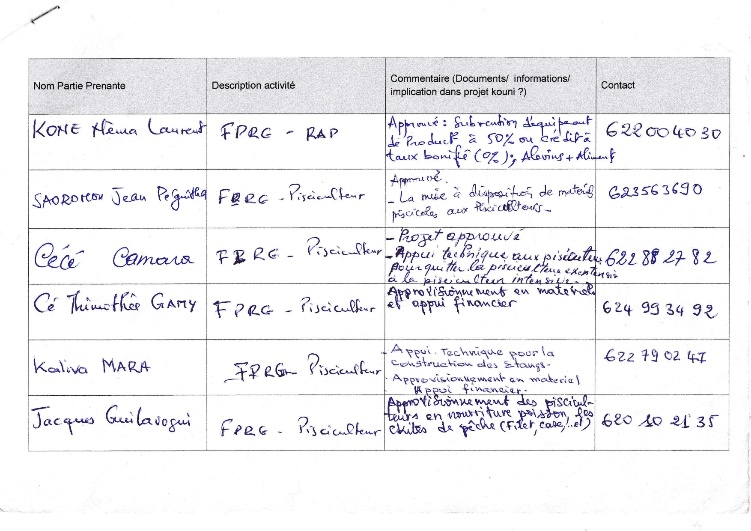 Nom Partie Prenante
Description activité
Commentaire (Documents/ informations/
implication dans projet kouni ?)
Contact
KONE Néma Laurent
FPRG - RAP
Approuvé : Subvention d'équipement
de Product° à 50% ou crédit à
taux bonifié (0%); Alevins + Aliment
622004030
Jean
FPRG - Pisciculteur
Approuvé.
- La mise à disposition de matériels
piscicoles aux pisciculteurs -
623563690
Cécé Camara
FPRG - Pisciculteur
- Projet approuvé
- Appui technique aux pisciculteurs
pour quitter la pisciculture extensive
à la pisciculture intensive.
622 88 27 82
Cé Thimothée GAMY
FPRG - Pisciculteur
Approvisionnement en matériels
et appui financier
624 99 34 92
Kaliva MARA
FPRG - Pisciculteur
- Appui. Technique pour la
construction des étangs.
- Approvisionnement en materiel
Appui financier.
622 79 02 47
Jacques Guilavogui
FPRG - Pisciculteur
Approvisionnement des piscicul-
teurs en nourriture poisson, les
de pêche (Filet,
620 10 21 35